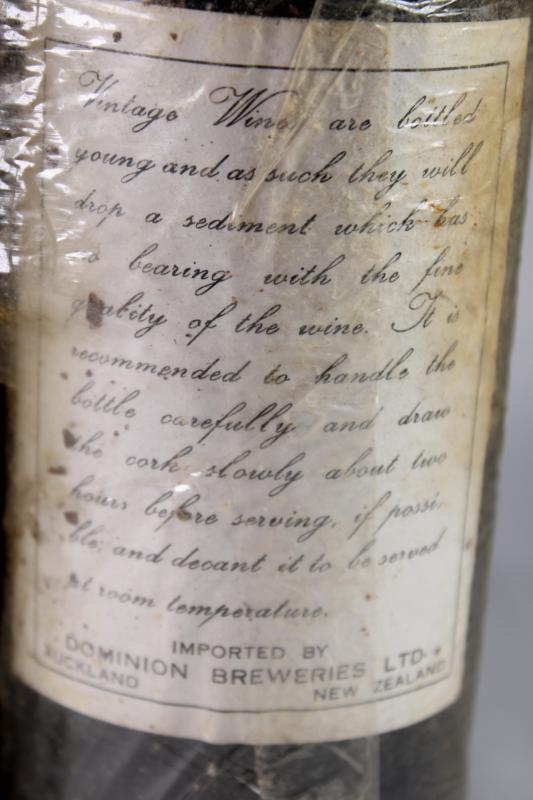 Vintage Wines are bottled
young and as such they will
drop a sediment which has
no bearing with the fine
quality of the wine. It is
recommended to handle the
bottle carefully and draw
the cork slowly about two
hours before serving, if possi-
ble; and decant it to be served
at room temperature.
IMPORTED BY
DOMINION BREWERIES LTD.
AUCKLAND NEW ZEALAND